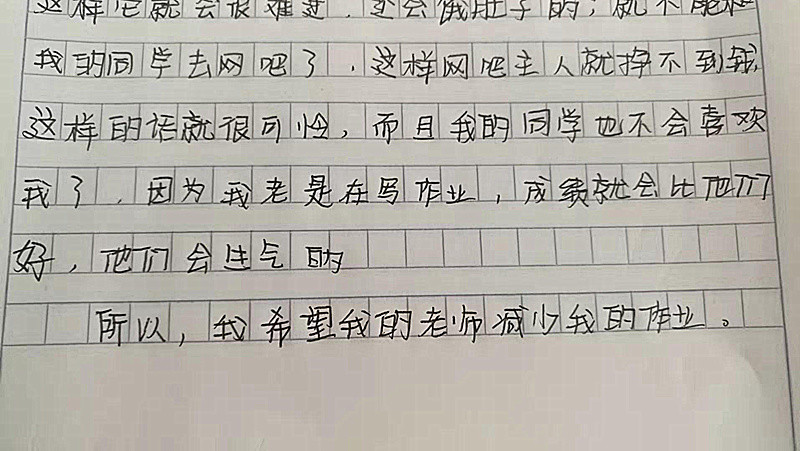 这样它就会很难过，还会饿肚子的；就不能和
我的同学去网吧了，这样网吧主人就挣不到钱，
这样的话就很可怜，而且我的同学也不会喜欢
我了，因为我老是在写作业，成绩就会比他们
好，他们会生气的
所以，我希望我的老师减少我的作业。